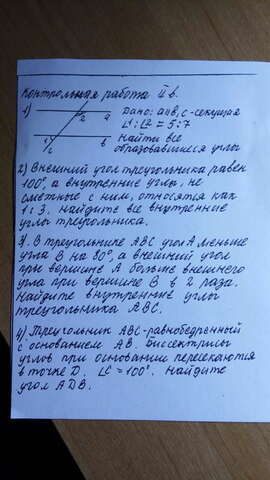 Контрольная работа II в.
1) 2 а Дано: а||в, с-секущая
∠1:∠2 = 5:7
1 в Найти все
с образовавшиеся углы
2) Внешний угол треугольника равен
100°, а внутренние углы, не
смежные с ним, относятся как
1:3. Найдите все внутренние
углы треугольника.
3). В треугольнике АВС угол А меньше
угла В на 80°, а внешний угол
при вершине А больше внешнего
угла при вершине В в 2 раза.
Найдите внутренние углы
треугольника АВС.
4). Треугольник АВС-равнобедренный
с основанием АВ. Биссектрисы
углов при основании пересекаются
в точке D. ∠C = 100°. Найдите
угол ADB.